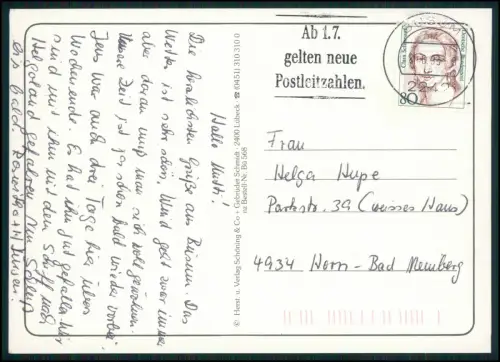 Hallo Mutti!
Die herzlichsten Grüße aus Büsum. Das
Wetter ist sehr schön, Wind geht zwar immer
aber daran muß man sich wohl gewöhnen.
Unsere Zeit ist ja schon bald wieder vorbei.
Jens war auch drei Tage hier übers
Wochenende. Es hat ihm gut gefallen. Wir
sind mit ihm mit dem Schiff nach
Helgoland gefahren. Nun Schluß
bis bald.
© Horst u. Verlag Schöning & Co · Gebrüder Schmidt · 2400 Lübeck ☎ (0451) 310 310 0
na Bestell-Nr. Bü 568
Ab 1.7.
gelten neue
Postleitzahlen.
BÜSUM
Clara Schumann
Deutsche Bundespost
80
Frau
Helga Hupe
Parkstr. 39 (weisses Haus)
4934 Horn-Bad Meinberg